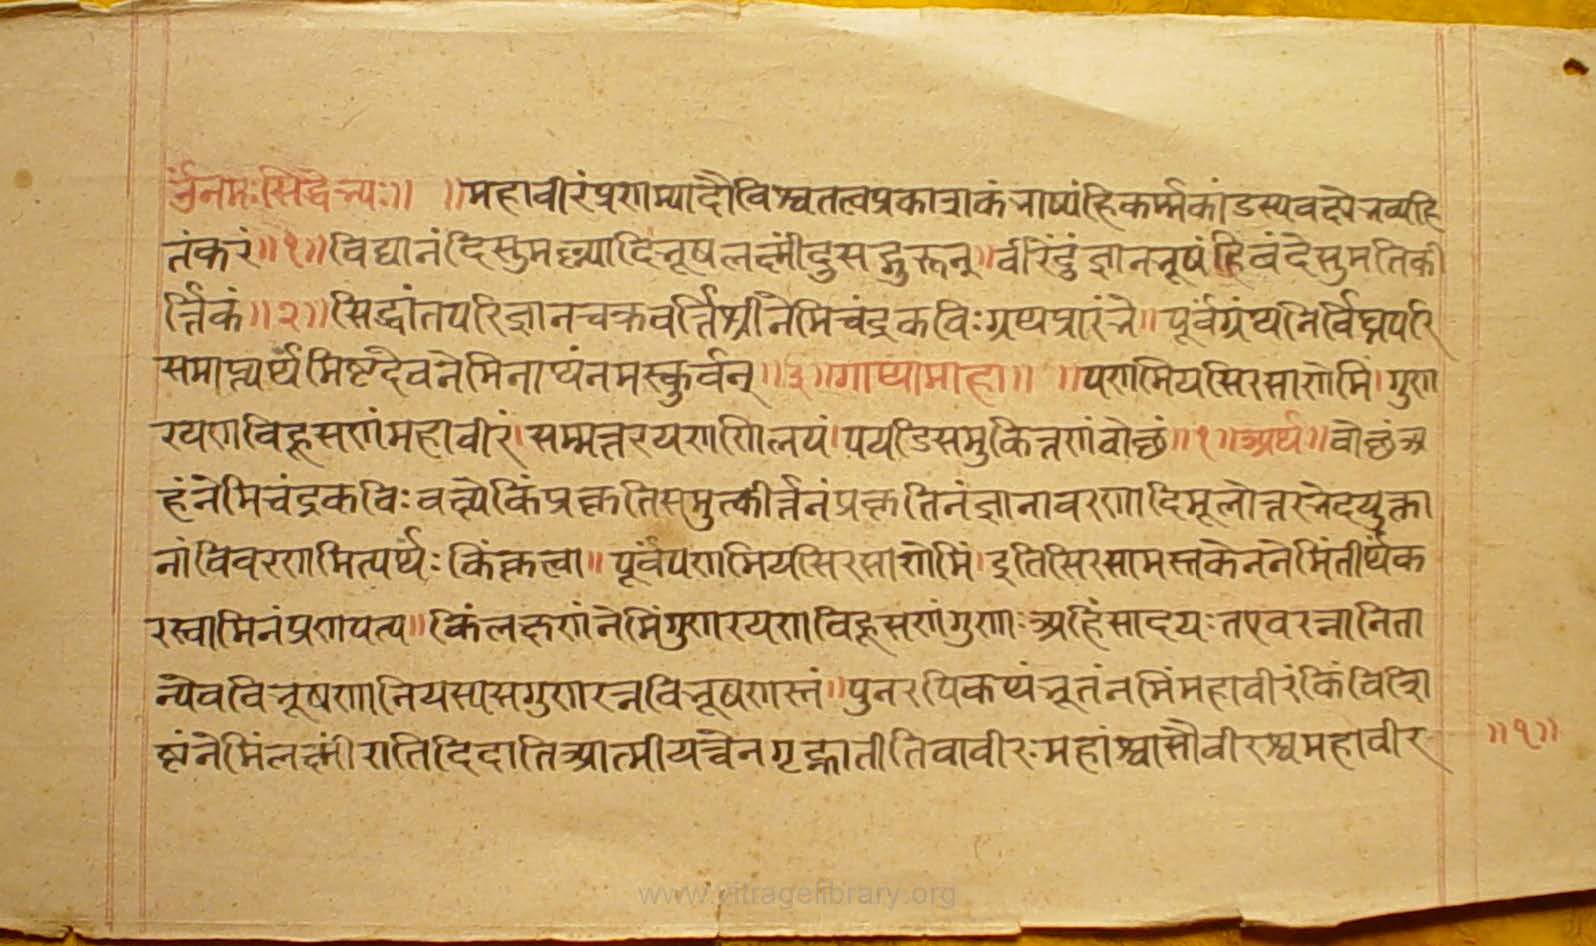 ॐनमःसिद्धेभ्यः॥ ॥महावीरंप्रणम्यादौविश्वतत्वप्रकाशकंभाष्यंहिकर्म्मकांडस्यवक्ष्येभव्यहि
तंकरं॥१॥विद्यानंदिसुमल्यादिभूषलक्ष्मींदुसद्गुरून्॥वीरेंदुंज्ञानभूषंहिवंदेसुमतिकी
र्त्तिकं॥२॥सिद्धांतपरिज्ञानचक्रवर्त्तिश्रीनेमिचंद्रकविःग्रथप्रारंभे॥पूर्वंग्रंथनिर्विघ्नपरि
समाप्त्यर्थमिष्टदेवनेमिनाथंनमस्कुर्वन्॥३॥गाथामाहा॥ ॥पणमियसिरसाणेमिं।गुण
रयणविहूसणंमहावीरं।सम्मत्तरयणणिलयं।पयडिसमुकित्तणंवोच्छं॥१॥अर्थ॥वोच्छंअ
हंनेमिचंद्रकविःवक्ष्येकिंप्रकृतिसमुत्कीर्त्तनंप्रकृतिनंज्ञानावरणादिमूलोत्तरभेदयुक्ता
नांविवरणमित्यर्थःकिंकृत्वा॥पूर्वंपणमियसिरसाणेमिं।इतिसिरसामस्तकेननेमिंतीर्थंक
रस्वामिनंप्रणपत्य॥किंलक्षणंनेमिंगुणरयणविहूसणंगुणाःअहिंसादयःतएवरत्नानिता
न्येवविभूषणानियस्यासगुणरत्नविभूषणस्तं॥पुनरपिकथंभूतंनमिंमहावीरंकिंविशि
ष्टंनेमिंलक्ष्मींरातिदिदातिआत्मीयत्वेनगृह्णातीतिवावीरःमहांश्वासौवीरश्चमहावीर
॥१॥
www.vitragelibrary.org